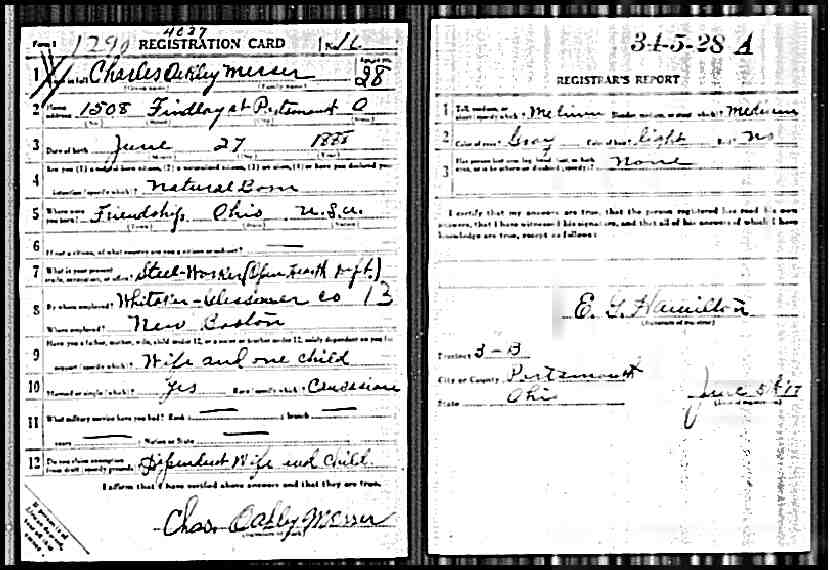 4037
Form 1 1290 REGISTRATION CARD No. 16
1 Name in full Charles Oakley Messer Age, in yrs. 28
(Given name) (Family name)
2 Home address 1508 Findlay st Portsmouth O
(No.) (Street) (City) (State)
3 Date of birth June 27 1888
(Month) (Day) (Year)
4 Are you (1) a natural-born citizen, (2) a naturalized citizen, (3) an alien, (4) or have you declared your
intention (specify which)? Natural Born
5 Where were you born? Friendship, Ohio U.S.A.
(Town) (State) (Nation)
6 If not a citizen, of what country are you a citizen or subject?
7 What is your present trade, occupation, or office? Steel-Worker (Open Hearth Dept.)
8 By whom employed? Whitaker-Glessner Co 13
Where employed? New Boston
9 Have you a father, mother, wife, child under 12, or a sister or brother under 12, solely dependent on you for
support (specify which)? Wife and one child
10 Married or single (which)? Yes Race (specify which)? Caucasian
11 What military service have you had? Rank ; branch
years ; Nation or State
12 Do you claim exemption from draft (specify grounds)? Dependent Wife and Child
I affirm that I have verified above answers and that they are true.
Chas. Oakley Messer
34-5-28 A
REGISTRAR'S REPORT
1 Tall, medium, or short (specify which)? Medium Slender, medium, or stout (which)? Medium
2 Color of eyes? Gray Color of hair? light Bald? No
3 Has person lost arm, leg, hand, foot, or both eyes, or is he otherwise disabled (specify)? None
I certify that my answers are true, that the person registered has read his own
answers, that I have witnessed his signature, and that all of his answers of which I have
knowledge are true, except as follows:
E. G. Hamilton
(Signature of registrar)
Precinct 3-B
City or County Portsmouth
State Ohio June 5th 17